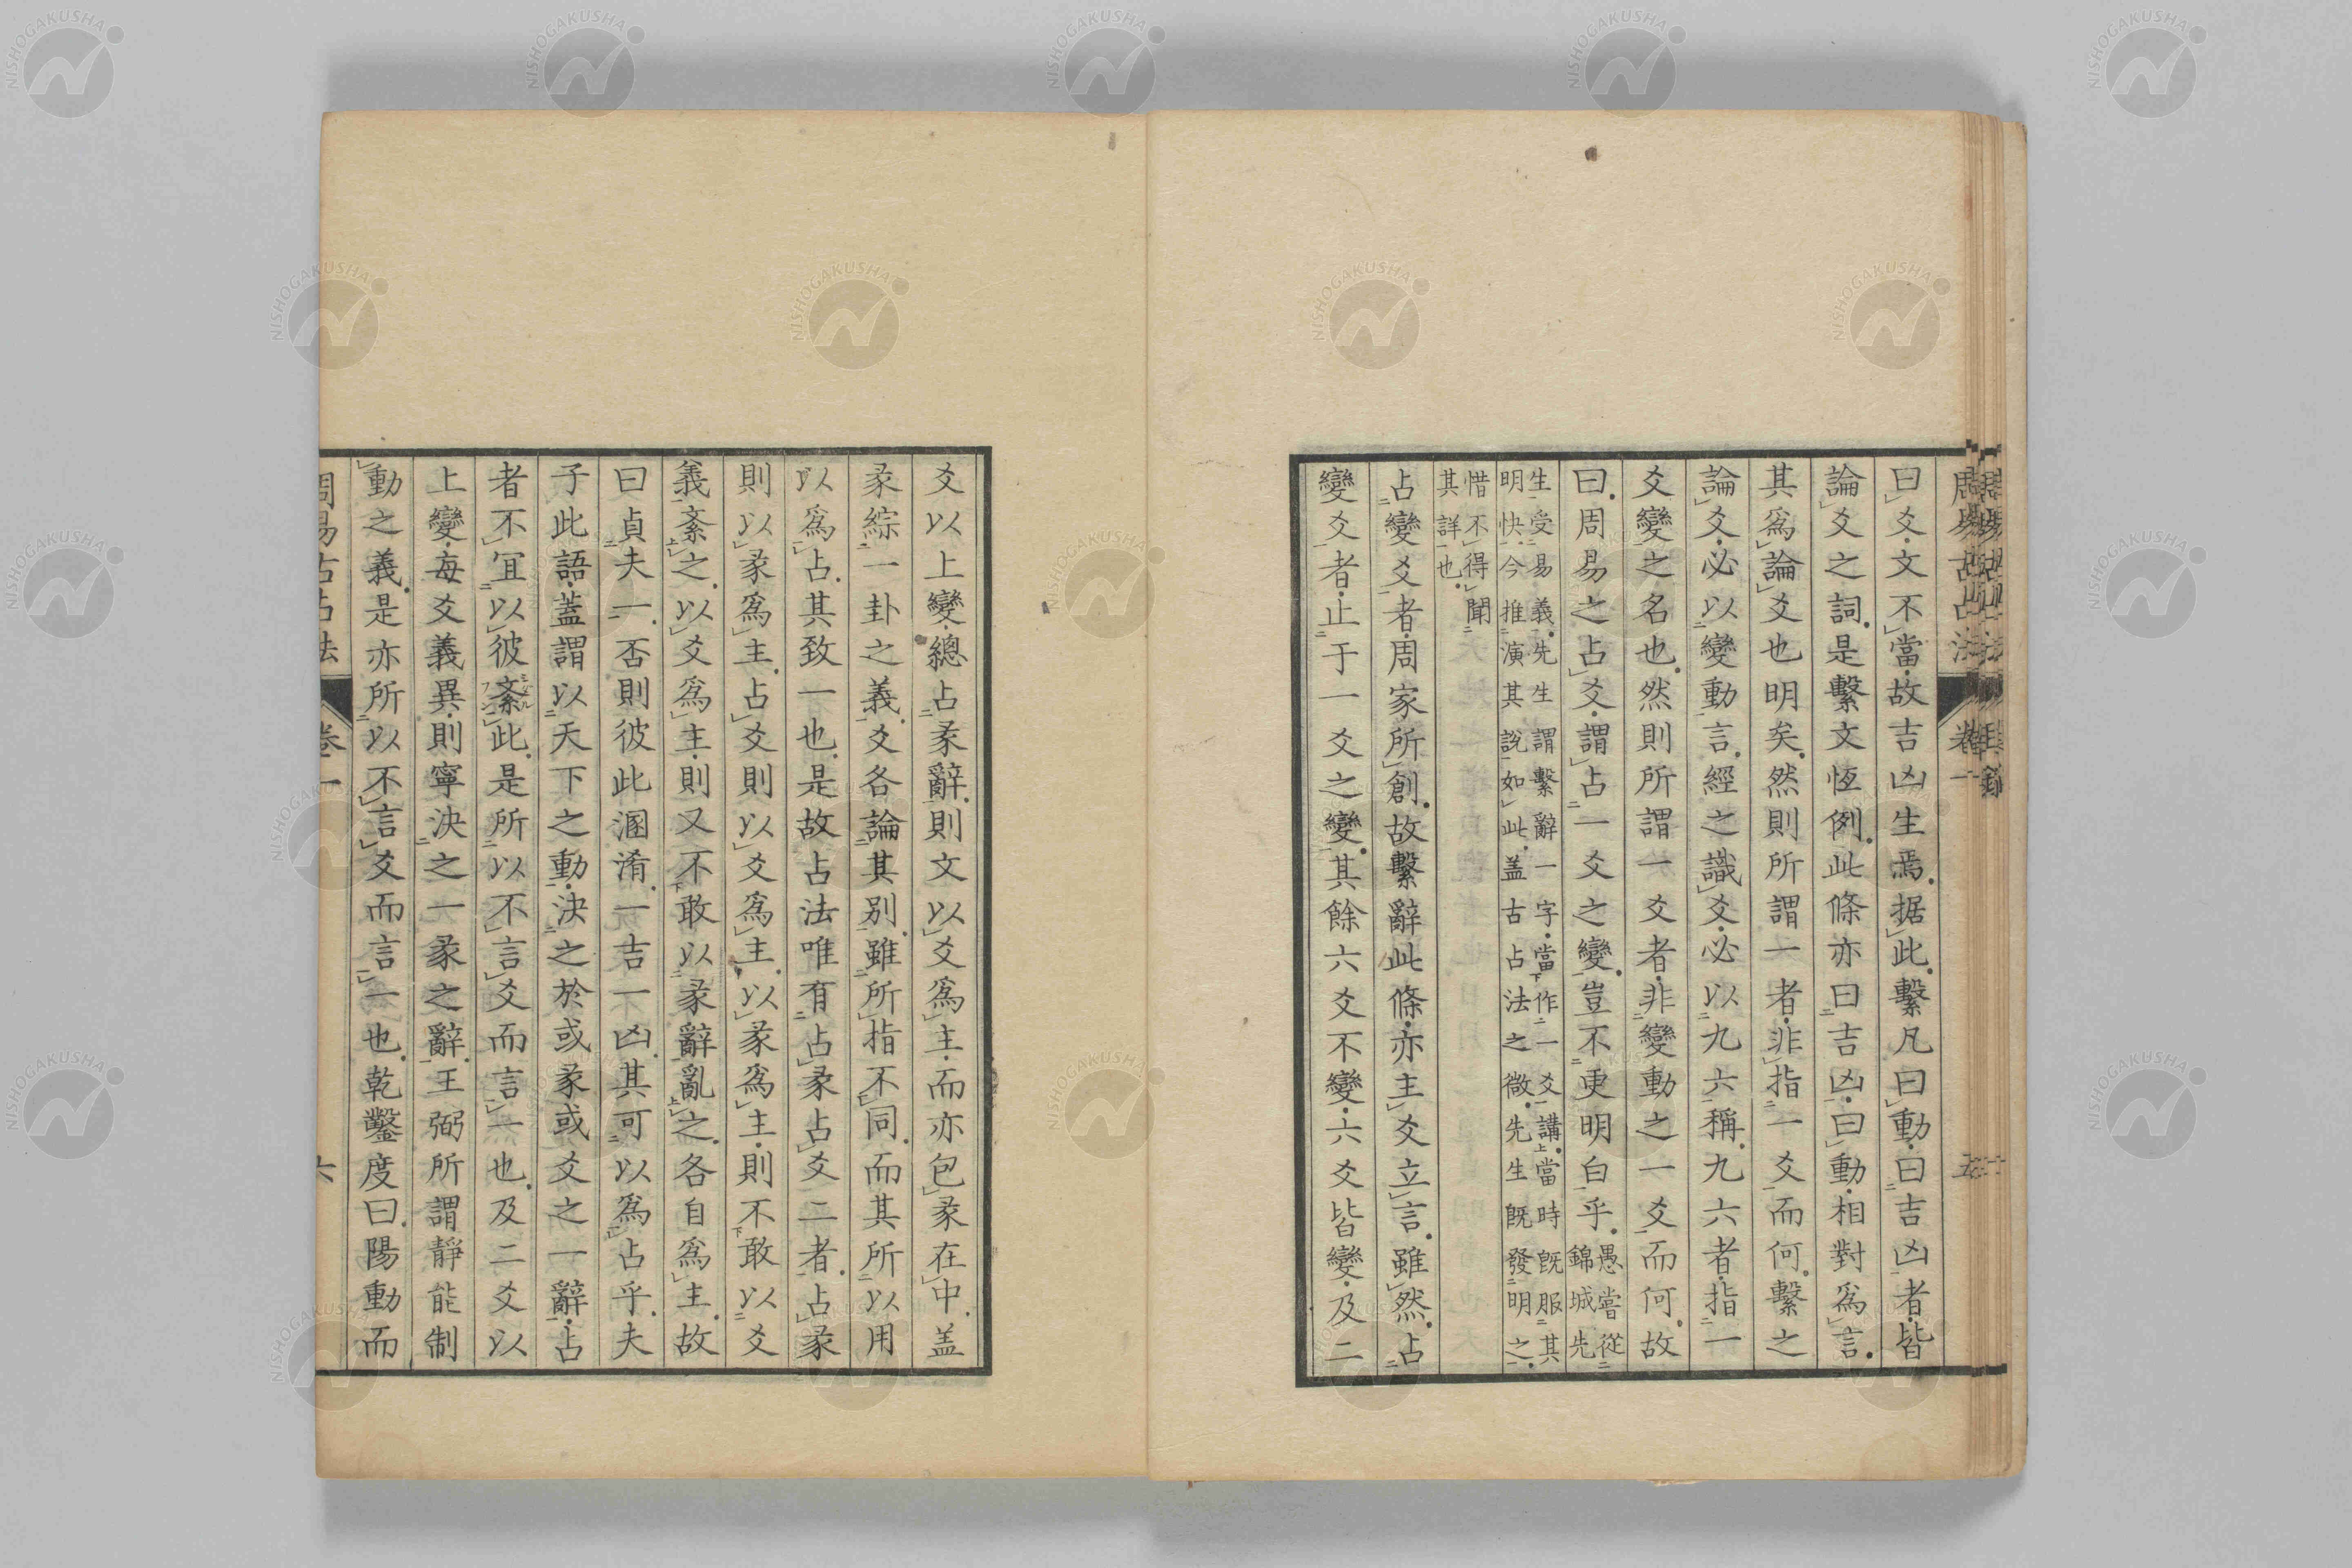 曰爻文不當故吉凶生焉据此繫凡曰動曰吉凶者皆
論爻之詞是繫文恆例此條亦曰吉凶曰動相對爲言
其爲論爻也明矣然則所謂一者非指一爻而何繫之
論爻必以變動言經之識爻必以九六稱九六者指一
爻變之名也然則所謂一爻者非變動之一爻而何故
曰周易之占爻謂占一爻之變豈不更明白乎
愚嘗從
錦城先
生受易義先生謂繫辭一字當作一爻講當時既服其
明快今推演其說如此蓋古占法之微先生既發明之
惜不得聞
其詳也
占變爻者周家所創故繫辭此條亦主爻立言雖然占
變爻者止于一爻之變其餘六爻不變六爻皆變及二
爻以上變總占彖辭則文以爻爲主而亦包彖在中蓋
彖綜一卦之義爻各論其別雖所指不同而其所以用
以爲占其致一也是故占法唯有占彖占爻二者占彖
則以彖爲主占爻則以爻爲主以彖爲主則不敢以爻
義紊之以爻爲主則又不敢以彖辭亂之各自爲主故
曰貞夫一否則彼此溷淆一吉一凶其可以爲占乎夫
子此語蓋謂以天下之動決之於或彖或爻之一辭占
者不宜以彼紊此是所以不言爻而言一也及二爻以
上變每爻義異則寧決之一彖之辭王弼所謂靜能制
動之義是亦所以不言爻而言一也乾鑿度曰陽動而
周易古占法 卷一 六
NISHOGAKUSHA